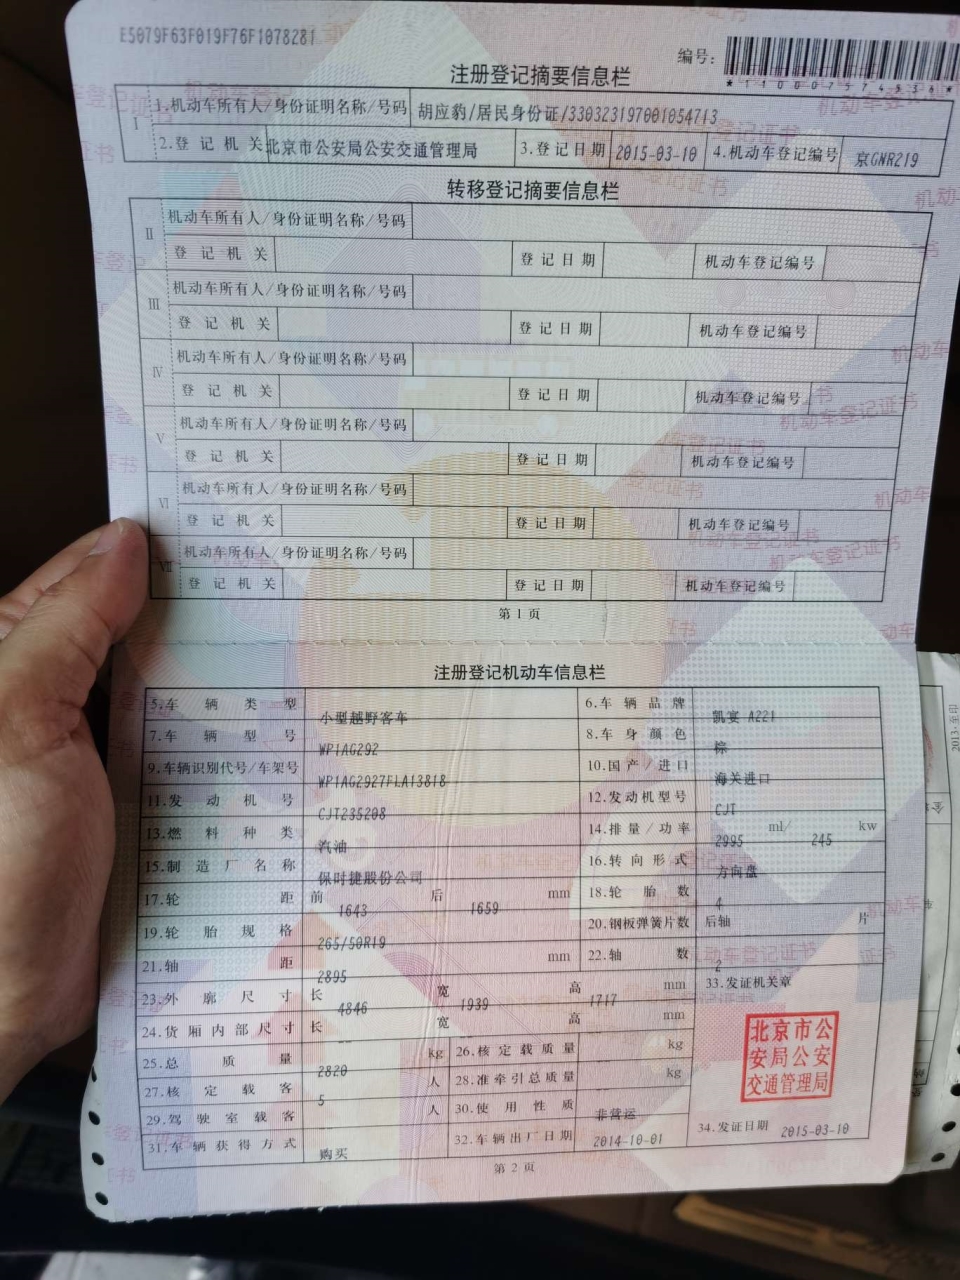 E5079F63F019F76F1078281
编号:
*110007574536*
注册登记摘要信息栏
I 1.机动车所有人/身份证明名称/号码 胡应豹/居民身份证/330323197001054713
2.登记机关 北京市公安局公安交通管理局 3.登记日期 2015-03-10 4.机动车登记编号 京GNR219
转移登记摘要信息栏
II 机动车所有人/身份证明名称/号码
登记机关 登记日期 机动车登记编号
III 机动车所有人/身份证明名称/号码
登记机关 登记日期 机动车登记编号
IV 机动车所有人/身份证明名称/号码
登记机关 登记日期 机动车登记编号
V 机动车所有人/身份证明名称/号码
登记机关 登记日期 机动车登记编号
VI 机动车所有人/身份证明名称/号码
登记机关 登记日期 机动车登记编号
VII 机动车所有人/身份证明名称/号码
登记机关 登记日期 机动车登记编号
第1页
注册登记机动车信息栏
5.车辆类型 小型越野客车 6.车辆品牌 凯宴 A221
7.车辆型号 WP1AG292 8.车身颜色 棕
9.车辆识别代号/车架号 WP1AG2927FLA13818 10.国产/进口 海关进口
11.发动机号 CJT235208 12.发动机型号 CJT
13.燃料种类 汽油 14.排量/功率 2995 ml/ 245 kw
15.制造厂名称 保时捷股份公司 16.转向形式 方向盘
17.轮距 前 1643 后 1659 mm 18.轮胎数 4
19.轮胎规格 265/50R19 20.钢板弹簧片数 后轴 片
21.轴距 2895 mm 22.轴数 2
23.外廓尺寸 长 4846 宽 1939 高 1717 mm 33.发证机关章
24.货厢内部尺寸 长 宽 高 mm
25.总质量 2820 kg 26.核定载质量 kg
27.核定载客 5 人 28.准牵引总质量 kg
29.驾驶室载客 人 30.使用性质 非营运
31.车辆获得方式 购买 32.车辆出厂日期 2014-10-01 34.发证日期 2015-03-10
北京市公
安局公安
交通管理局
第2页